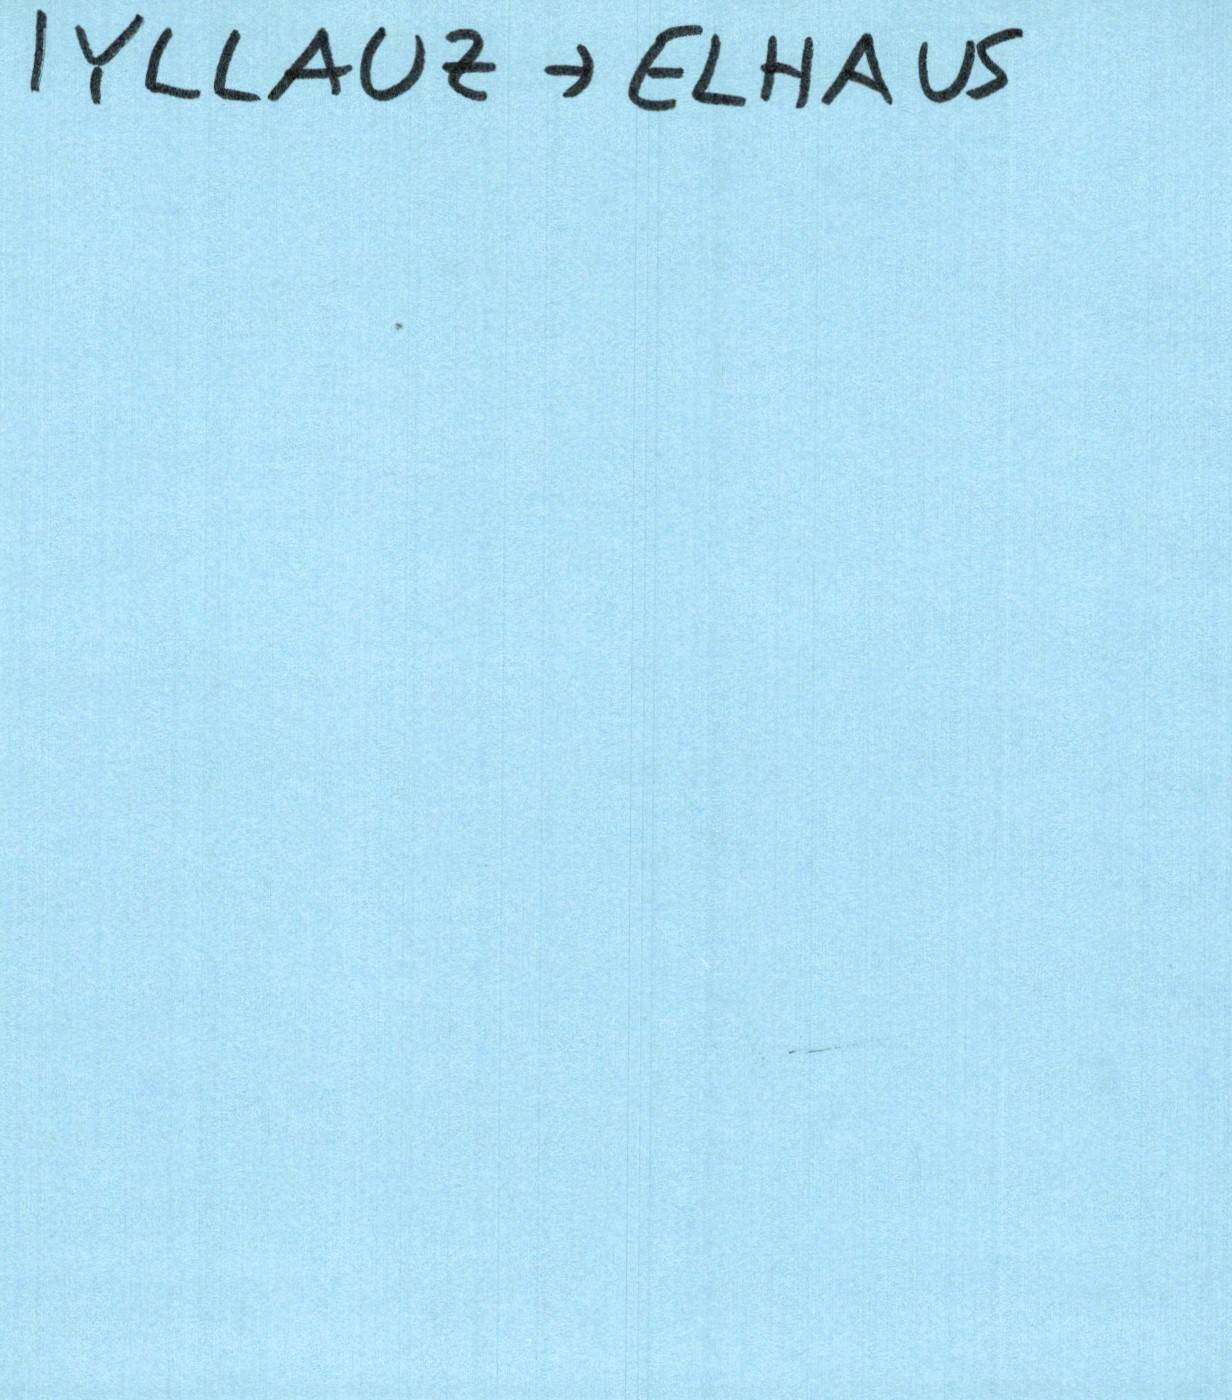 IYLLAUZ → ELHAUS